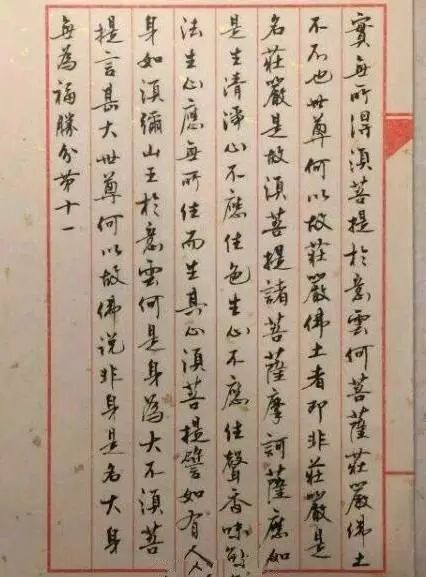 實無所得須菩提於意雲何菩薩莊嚴佛土
不不也世尊何以故莊嚴佛土者即非莊嚴是
名莊嚴是故須菩提諸菩薩摩訶薩應如
是生清淨心不應住色生心不應住聲香味觸
法生心應無所住而生其心須菩提譬如有人
身如須彌山王於意雲何是身為大不須菩
提言甚大世尊何以故佛说非身是名大身
無為福勝分第十一